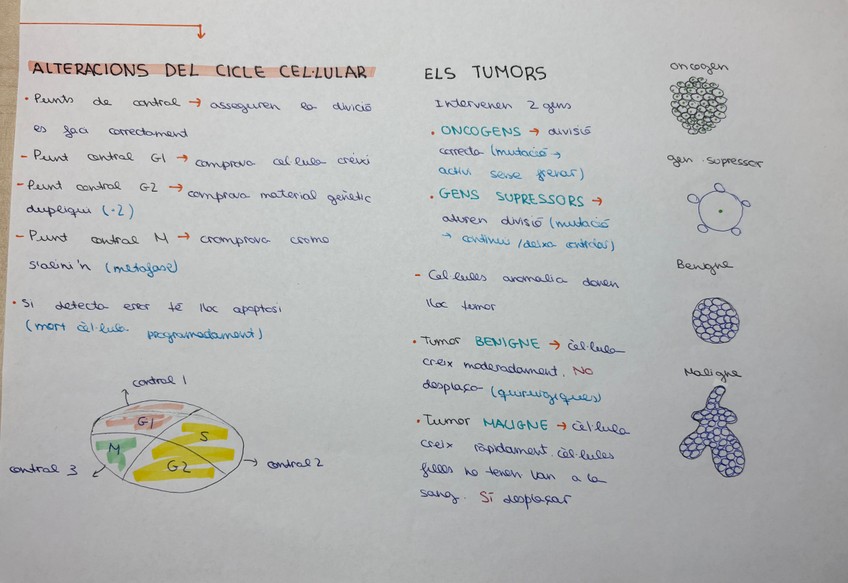 ALTERACIONS DEL CICLE CEL·LULAR
· Punts de control → asseguren la divició
es faci correctament
- Punt control G1 → comprova cel·lula creixi
- Punt control G2 → comprova material genètic
dupliqui (·2)
- Punt control M → cromprova cromo
s'alini'n (metafase)
· Si detecta error té lloc apoptosi
(mort cèl·lula programadament)
control 1
G1
S
M
G2
control 3
control 2
ELS TUMORS
Intervenen 2 gens
· ONCOGENS → divisió
correcta (mutació →
activi sense frenar)
· GENS SUPRESSORS →
aturen divisió (mutació
→ continui /deixa
- Cel·lules anomalia donen
lloc tumor
· Tumor BENIGNE → cèl·lula
creix moderadament. NO
desplaça (quirúrgiques)
· Tumor MALIGNE → cèl·lula
creix ràpidament. cèl·lules
filles no tenen van a la
sang. SÍ desplaçar
oncogen
gen supressor
Benigne
Maligne